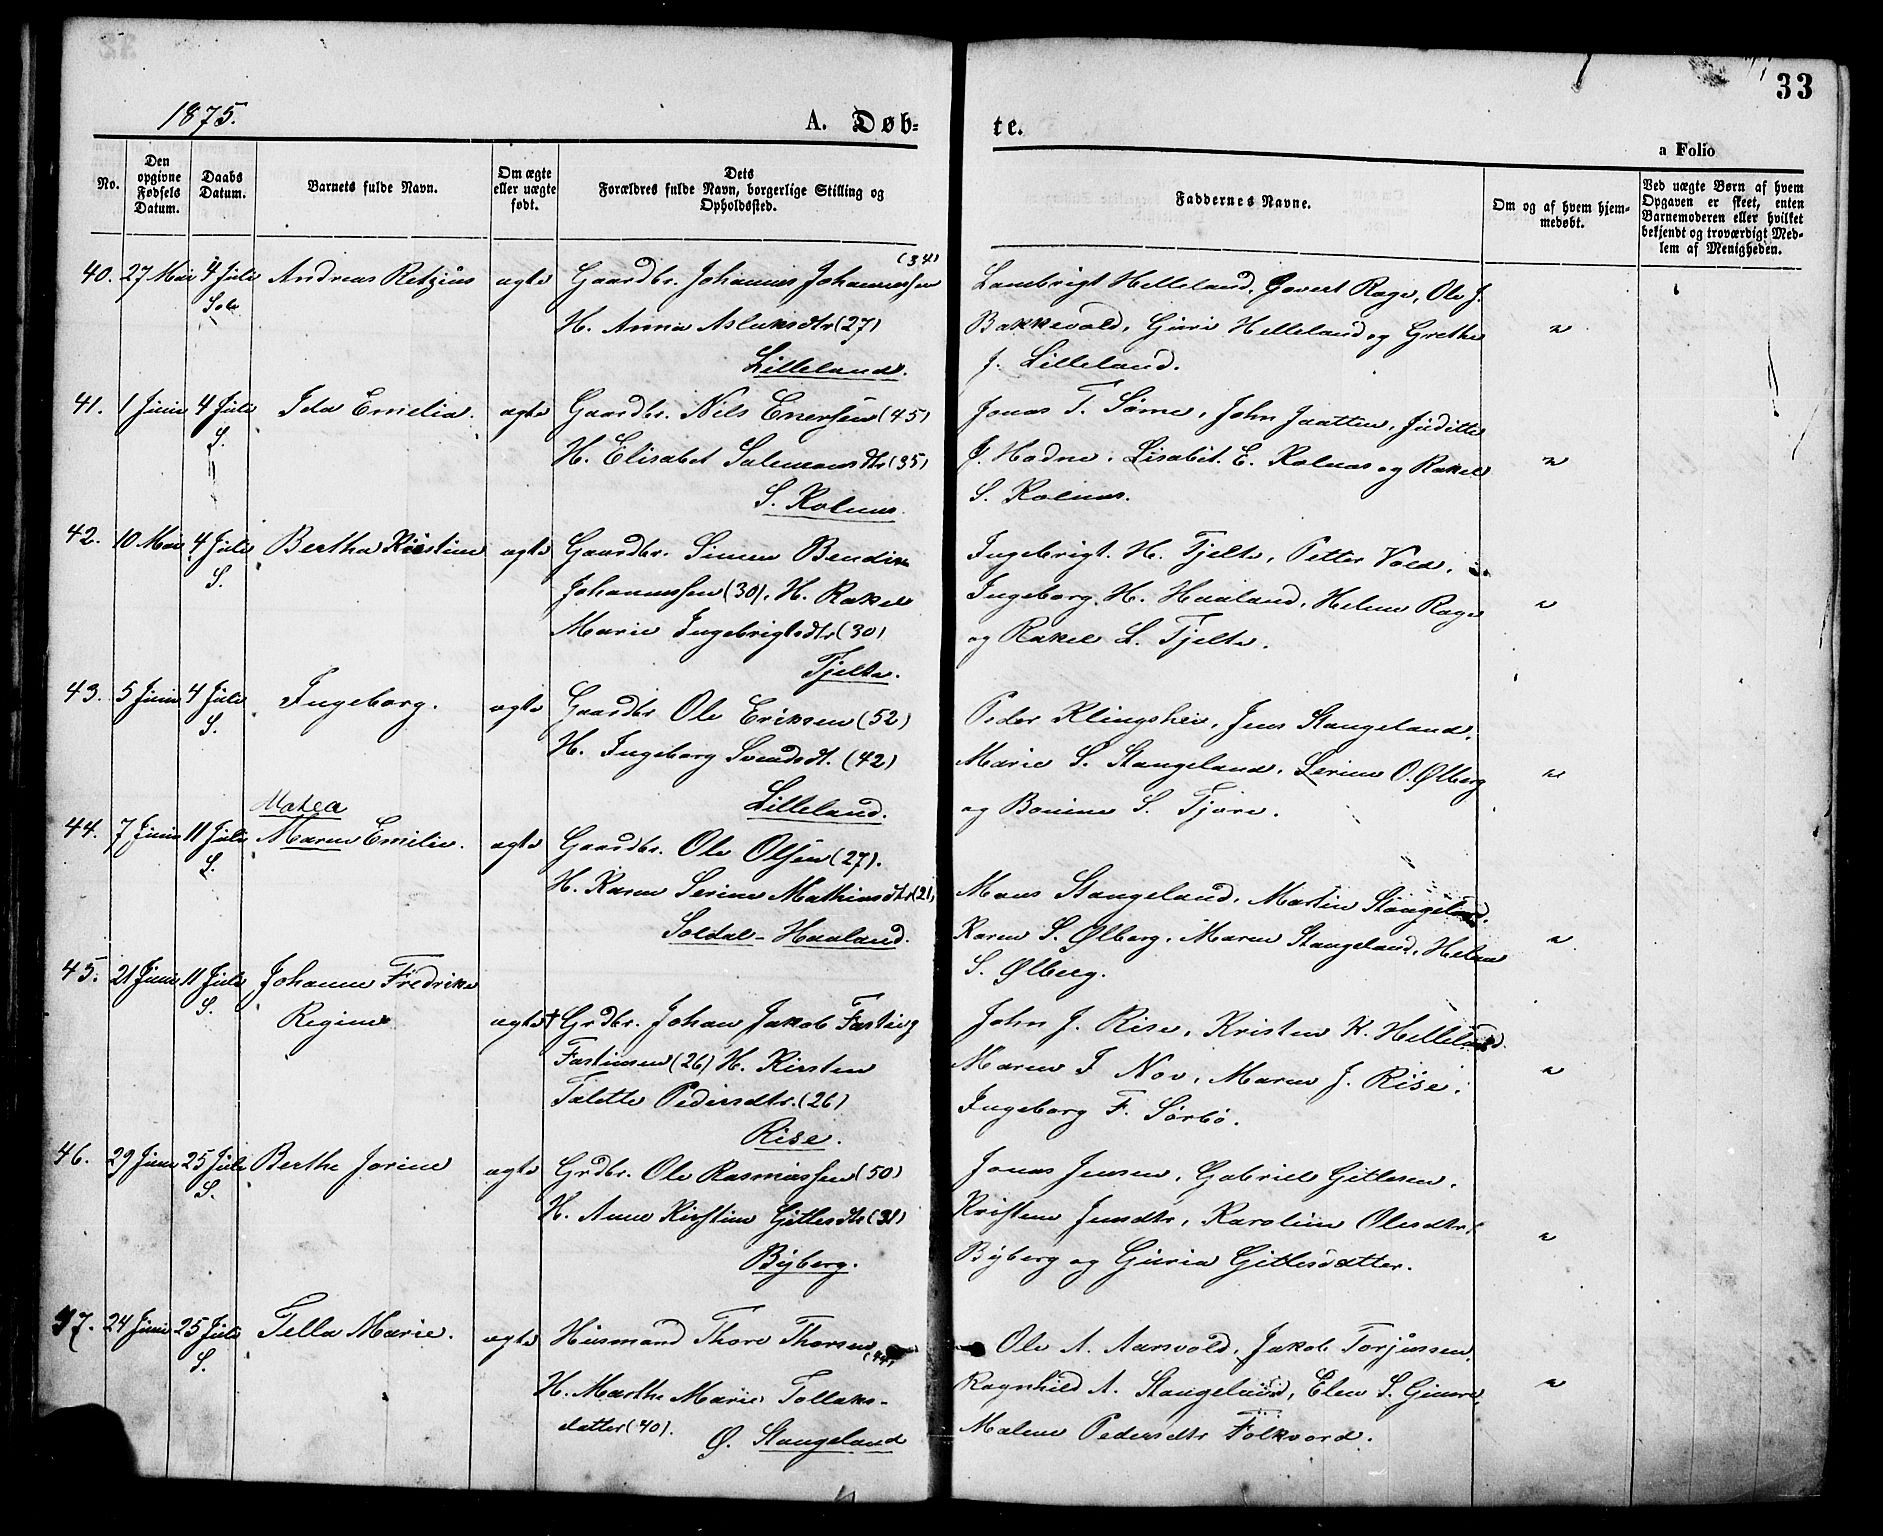 33
1875.
A. Døb-
te.
a Folio
No.
Den opgivne Fødsels Datum.
Daabs Datum.
Barnets fulde Navn.
Om ægte eller uægte født.
Dets Forældres fulde Navn, borgerlige Stilling og Opholdssted.
Faddernes Navne.
Om og af hvem hjem-
medøbt.
Ved uægte Børn af hvem
Opgaven er skeet, enten
Barnemoderen eller hvilket
bekjendt og troværdigt Med-
lem af Menigheden.
40. 27 Mai 4 Juli Andreas Retzius ægte Gaardbr. Johannes Johannessen (34)
S.
H. Anna Aslaksdtr (27)
Lilleland.
Lambrigt Helleland, Govert Rage, Ole J.
Bakkevold, Guri Helleland og Grethe
J. Lilleland.
41. 1 Juni 4 Juli Ida Emelia. ægte Gaardbr. Nils Enersen (45)
S.
H. Elisabet Salemonsdtr (35)
S. Kolnes.
Jonas T. Sørne, John Jaatten, Juditte
J. Hodne, Lisabet E. Kolnes og Rakel
S. Kolnes.
42. 10 Mai 4 Juli Bertha Kirstine ægte Gaardbr. Simen Bendix
S.
Johannessen (30), H. Rakel
Marie Ingebrigtsdtr (30)
Tjelta.
Ingebrigt H. Tjelta, Petter Vold,
Ingeborg H. Haaland, Helene Rage
og Rakel L. Tjelta.
43. 5 Juni 4 Juli Ingeborg. ægte Gaardbr Ole Eriksen (52)
S.
H. Ingeborg Svendsdt. (42)
Lilleland.
Peder Klingshei, Jens Stangeland,
Marie S. Stangeland, Serine O. Ølberg
og Bonine S. Tjora.
Matea
44. 7 Juni 11 Juli Maren Emilie. ægte Gaardbr. Ole Olsen (27).
S.
H. Karen Serine Mathiasdtr (21)
Soldal-Haaland.
Mons Stangeland, Martin Stangeland,
Karen S. Ølberg, Maren Stangeland, Helene
S. Ølberg.
45. 21 Juni 11 Juli Johanne Fredrike
S.
Regine ægte Grdbr. Johan Jakob Fasting
Fastinsen (26) H. Kirsten
Talette Pedersdtr. (26)
Rise.
John J. Rise, Kristen K. Helleland.
Maren T Nov, Maren J. Rise,
Ingeborg F. Sørbø.
46. 29 Juni 25 Juli Berthe Jorine ægte Grdbr. Ole Rasmussen (50)
S.
H. Anne Kirstine Gittlesdtr (31)
Byberg.
Jonas Jensen, Gabriel Gitlesen,
Kristene Jensdtr, Karoline Olesdtr,
Byberg og Guria Gitlesdatter.
47. 24 Juni 25 Juli Tella Marie. ægte Husmand Thore Thorsen (44)
S.
H. Marthe Marie Tollaks-
datter (40).
Ø. Stangeland
Ole A. Aarsvold, Jakob Torjussen,
Ragnhild A. Stangeland, Elen S. Gimre,
Malene Pedersdtr Folkvord.